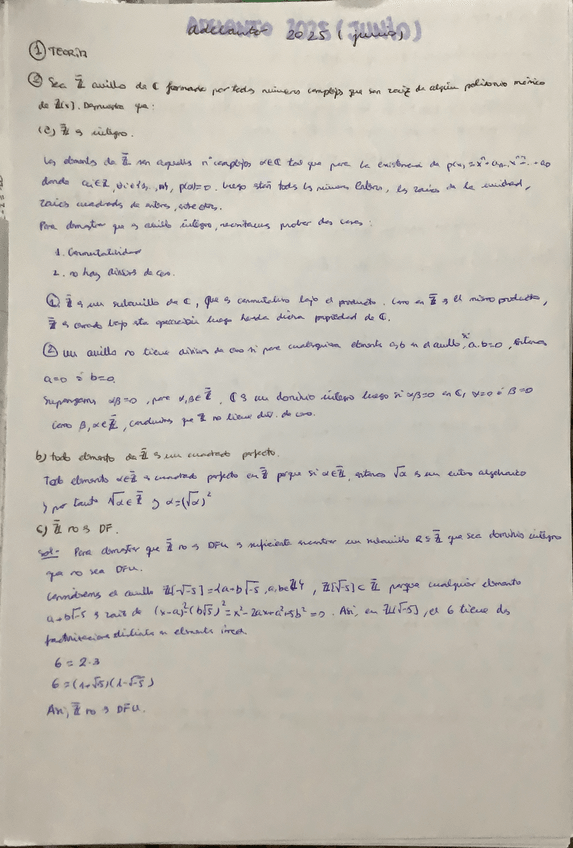 adelanto 2025 (junio)
① TEORÍA
② Sea Z̄ anillo de ℂ formado por todos números complejos que son raíz de algún polinomio mónico
de ℤ[x]. Demuestra que:
(a) Z̄ es íntegro.
Los elementos de Z̄ son aquellos nº complejos α∈ℂ tal que para la existencia de p(x) = xⁿ
donde p(α)=0. Luego están todos los números enteros, las raíces de la unidad,
raíces cuadradas de enteros, entre otros.
Para demostrar que es anillo íntegro, necesitamos probar dos cosas:
1. Conmutatividad
2. no hay divisores de cero.
① Z̄ es un subanillo de ℂ, que es conmutativo bajo el producto. Como en Z̄ es el mismo producto,
Z̄ es cerrado bajo esta operación luego hereda dicha propiedad de ℂ.
② Un anillo no tiene divisores de cero si para cualesquiera elementos a,b en el anillo, si a·b=0, entonces
a=0 ó b=0.
Supongamos αβ=0, para α,β∈Z̄. ℂ es un dominio íntegro luego si αβ=0 en ℂ, α=0 ó β=0
Como β,α∈Z̄, concluimos que Z̄ no tiene div. de cero.
b) todo elemento de Z̄ es un cuadrado perfecto.
Todo elemento α∈Z̄ es cuadrado perfecto en Z̄ porque si α∈Z̄, entonces √α es un entero algebraico
y por tanto √α∈Z̄ y α=(√α)²
c) Z̄ no es DF.
Sol:- Para demostrar que Z̄ no es DFU es suficiente encontrar un subanillo R⊆Z̄ que sea dominio íntegro
que no sea DFU.
Consideremos el anillo ℤ[√-5]={a+b√-5, a,b∈ℤ}, ℤ[√-5]⊂Z̄ porque cualquier elemento
a+b√-5 es raíz de (x-a)²-(b√5)²=x²-2ax+a²+5b²=0. Así, en ℤ[√-5], el 6 tiene dos
factorizaciones distintas en elementos irred.
6=2·3
6=(1+√-5)(1-√-5)
Así, Z̄ no es DFU.